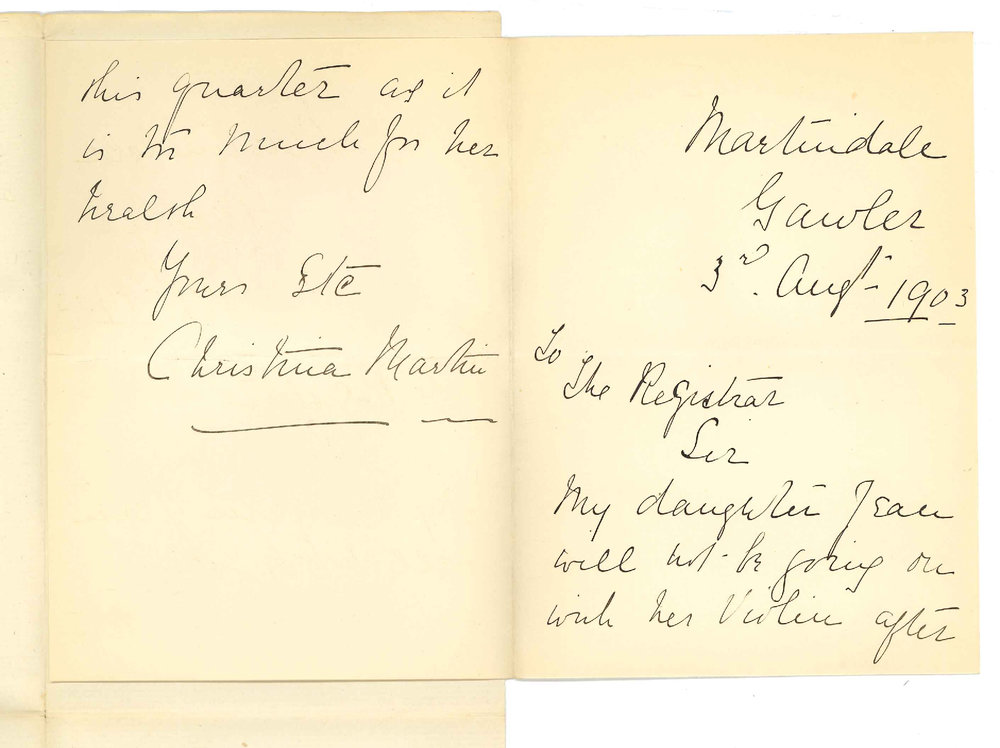 Martindale
Gawler
3rd. Augt 1903
To
The Registrar
Sir
My daughter Jean
will not be going on
with her Violin after
this quarter as it
is too much for her
health
Yours Etc
Christina Martin